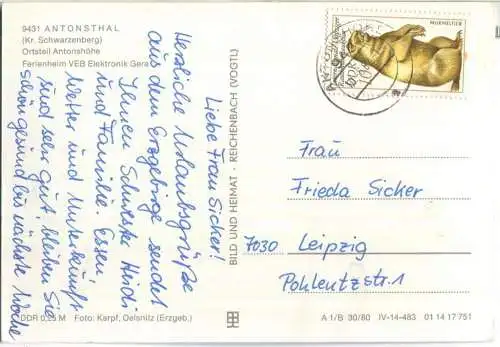 9431 ANTONSTHAL
(Kr. Schwarzenberg)
Ortsteil Antonshöhe
Ferienheim VEB Elektronik Gera
Liebe Frau Sicker!
Herzliche Urlaubsgrüße
aus dem Erzgebirge sendet
Ihnen Schwester Heidi
und Familie. Essen
Wetter und Unterkunft
sind sehr gut, bleiben Sie
schön gesund bis nächste Woche
DDR 0,25 M Foto: Karpf, Oelsnitz (Erzgeb.)
BILD UND HEIMAT · REICHENBACH (VOGTL)
MURMELTIER
DDR
10
Frau
Frieda Sicker
7030 Leipzig
Pohlentzstr. 1
A 1/B 30/80 IV-14-483 01 14 17 751